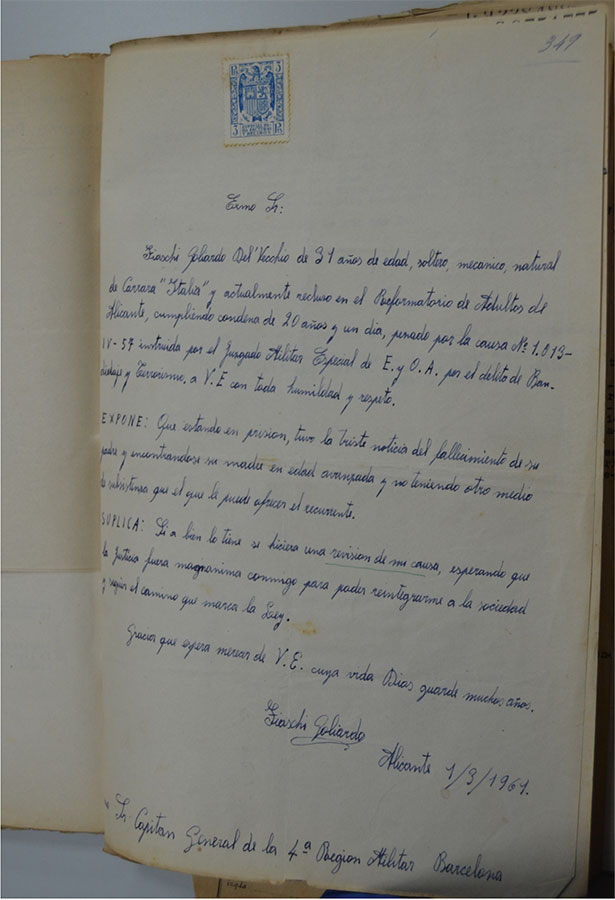 349
3 PTS
3 PTS
ESPECIAL MOVIL
Exmo Sr:
Fiaschi Goliardo Del'Vecchio de 31 años de edad, soltero, mecanico, natural
de Carrara "Italia" y actualmente recluso en el Reformatorio de Adultos de
Alicante, cumpliendo condena de 20 años y un dia, penado por la causa Nº 1.013-
IV-57 instruida por el Juzgado Militar Especial de E. y O.A. por el delito de Ban-
didaje y Terrorismo. a V.E con toda humildad y respeto.
EXPONE: Que estando en prision, tuvo la triste noticia del fallecimiento de su
padre y encontrandose su madre en edad avanzada y no teniendo otro medio
de subsistensa que el que le puede ofrecer el recurrente.
SUPLICA: Si a bien lo tiene se hiciera una revision de mi causa, esperando que
la Justicia fuera magnanima conmigo para poder reintegrarme a la sociedad
y seguir el camino que marca la Ley.
Gracias que espera merecer de V.E. cuya vida Dios guarde muchos años.
Fiaschi Goliardo
Alicante 1/3/1961.
Sr Capitan General de la 4ª Region Militar Barcelona